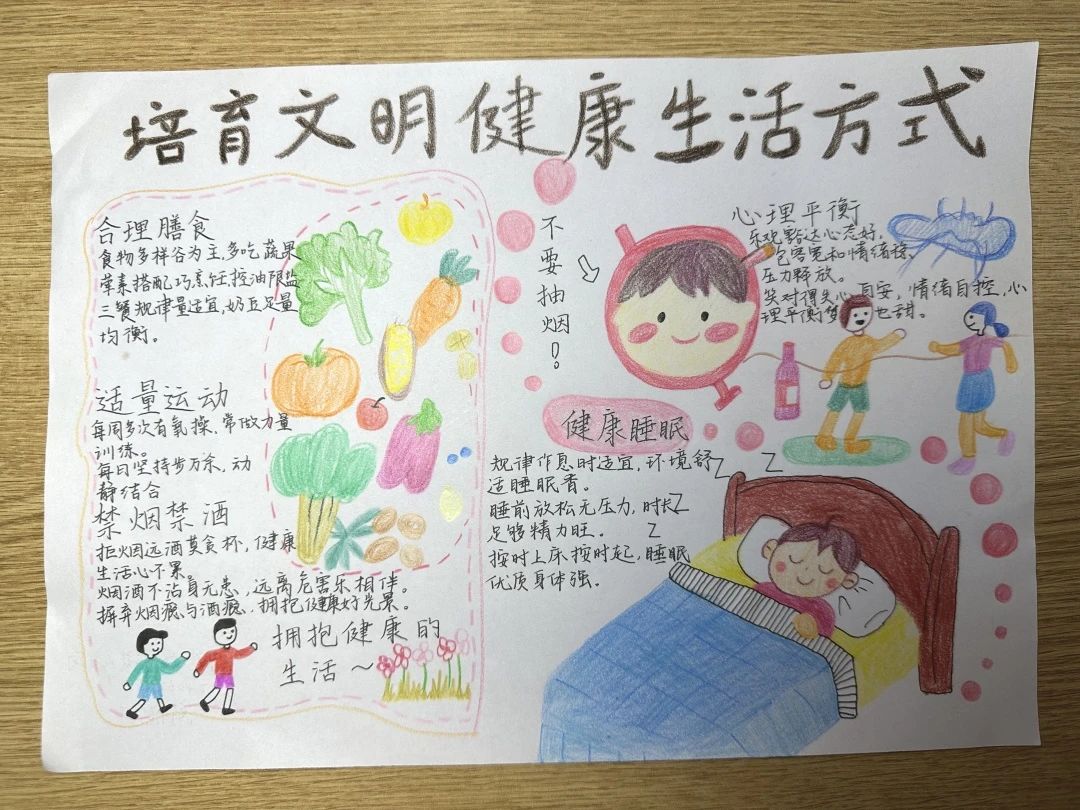 培育文明健康生活方式
合理膳食
食物多样谷为主,多吃蔬果
荤素搭配巧烹饪,控油限盐
三餐规律量适宜,奶豆足量
均衡。
适量运动
每周多次有氧操,常做力量
训练。
每日坚持步万余,动
静结合
禁烟禁酒
拒烟远酒莫贪杯,健康
生活心不累。
烟酒不沾身无患,远离危害乐相伴。
摒弃烟瘾与酒瘾,拥抱健康好光景。
拥抱健康的
生活~
不要抽烟!
心理平衡
乐观豁达心态好,
包容宽和情绪稳、
压力释放。
笑对得失心自安,情绪自控,心
理平衡梦也甜。
健康睡眠
规律作息时适宜,环境舒
适睡眠香。
睡前放松无压力,时长
足够精力旺。
按时上床按时起,睡眠
优质身体强.
Z
Z
Z
Z